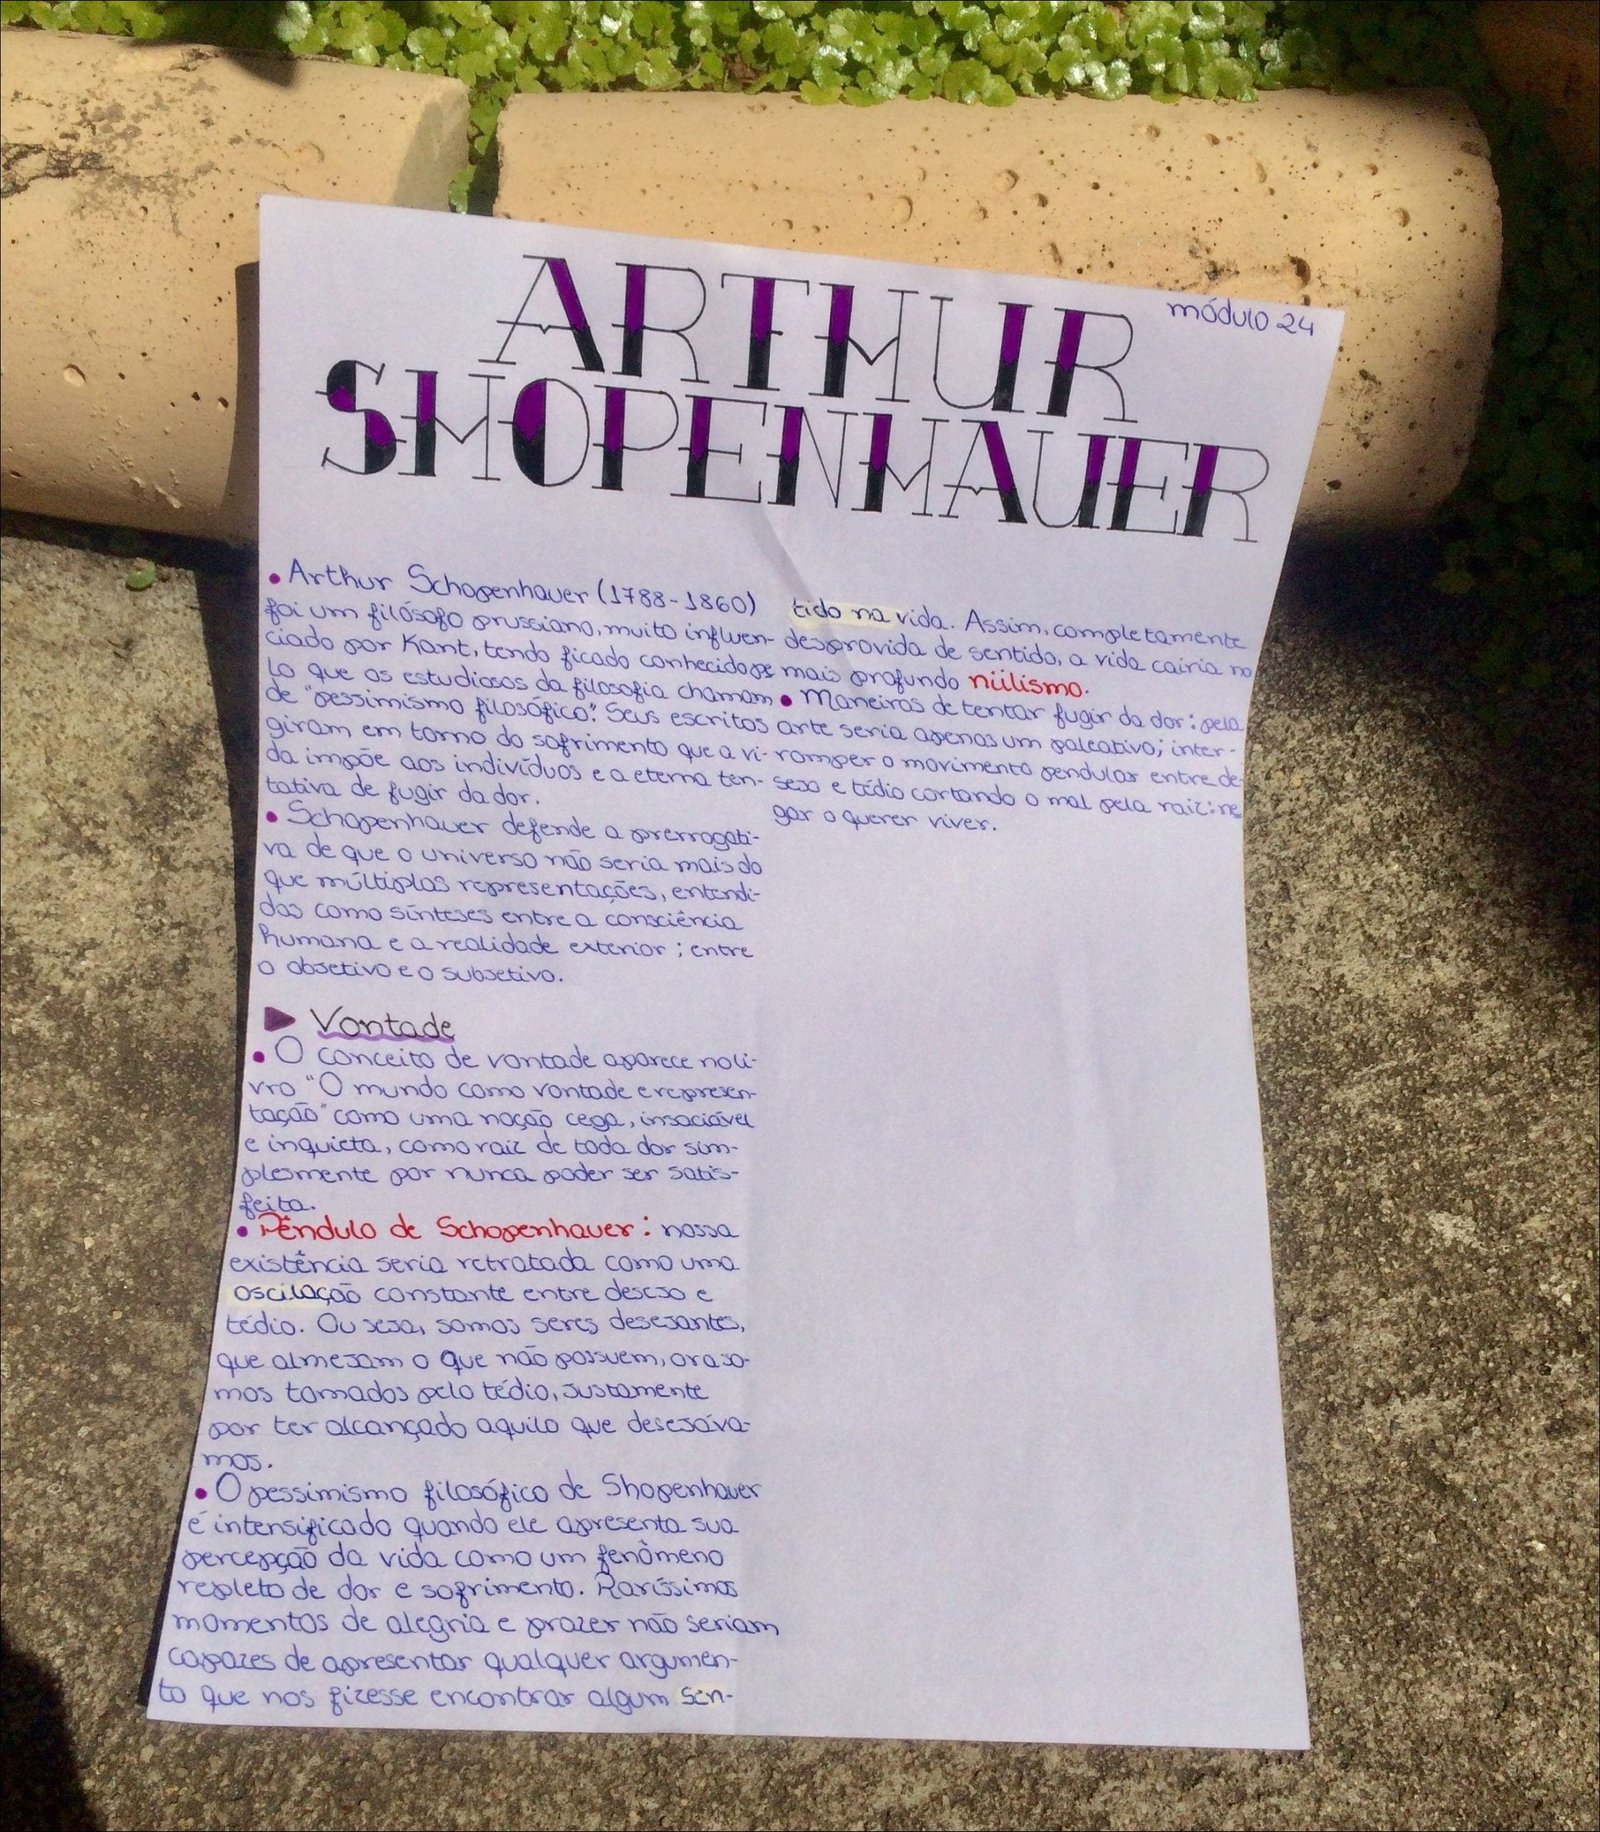 módulo 24
ARTHUR
SHOPENHAUER
• Arthur Schopenhauer (1788-1860)
foi um filósofo prussiano, muito influen-
ciado por Kant, tendo ficado conhecido pe
lo que os estudiosos da filosofia chamam
de "pessimismo filosófico". Seus escritos
giram em torno do sofrimento que a vi-
da impõe aos indivíduos e a eterna ten-
tativa de fugir da dor.
• Schopenhauer defende a prerrogati-
va de que o universo não seria mais do
que múltiplas representações, entendi-
das como sínteses entre a consciência
humana e a realidade exterior; entre
o objetivo e o subjetivo.
► Vontade
• O conceito de vontade aparece no li-
vro "O mundo como vontade e represen-
tação" como uma noção cega, insaciável
e inquieta, como raiz de toda dor sim-
plesmente por nunca poder ser satis-
feita.
• Pêndulo de Schopenhauer: nossa
existência seria retratada como uma
oscilação constante entre desejo e
tédio. Ou seja, somos seres desejantes,
que almejam o que não possuem, ora so-
mos tomados pelo tédio, justamente
por ter alcançado aquilo que desejáva-
mos.
• O pessimismo filosófico de Shopenhauer
é intensificado quando ele apresenta sua
percepção da vida como um fenômeno
repleto de dor e sofrimento. Raríssimos
momentos de alegria e prazer não seriam
capazes de apresentar qualquer argumen-
to que nos fizesse encontrar algum sen-
tido na vida. Assim, completamente
desprovida de sentido, a vida cairia no
mais profundo niilismo.
• Maneiras de tentar fugir da dor: pela
arte seria apenas um paleativo; inter-
romper o movimento pendular entre de
sejo e tédio cortando o mal pela raiz: ne
gar o querer viver.